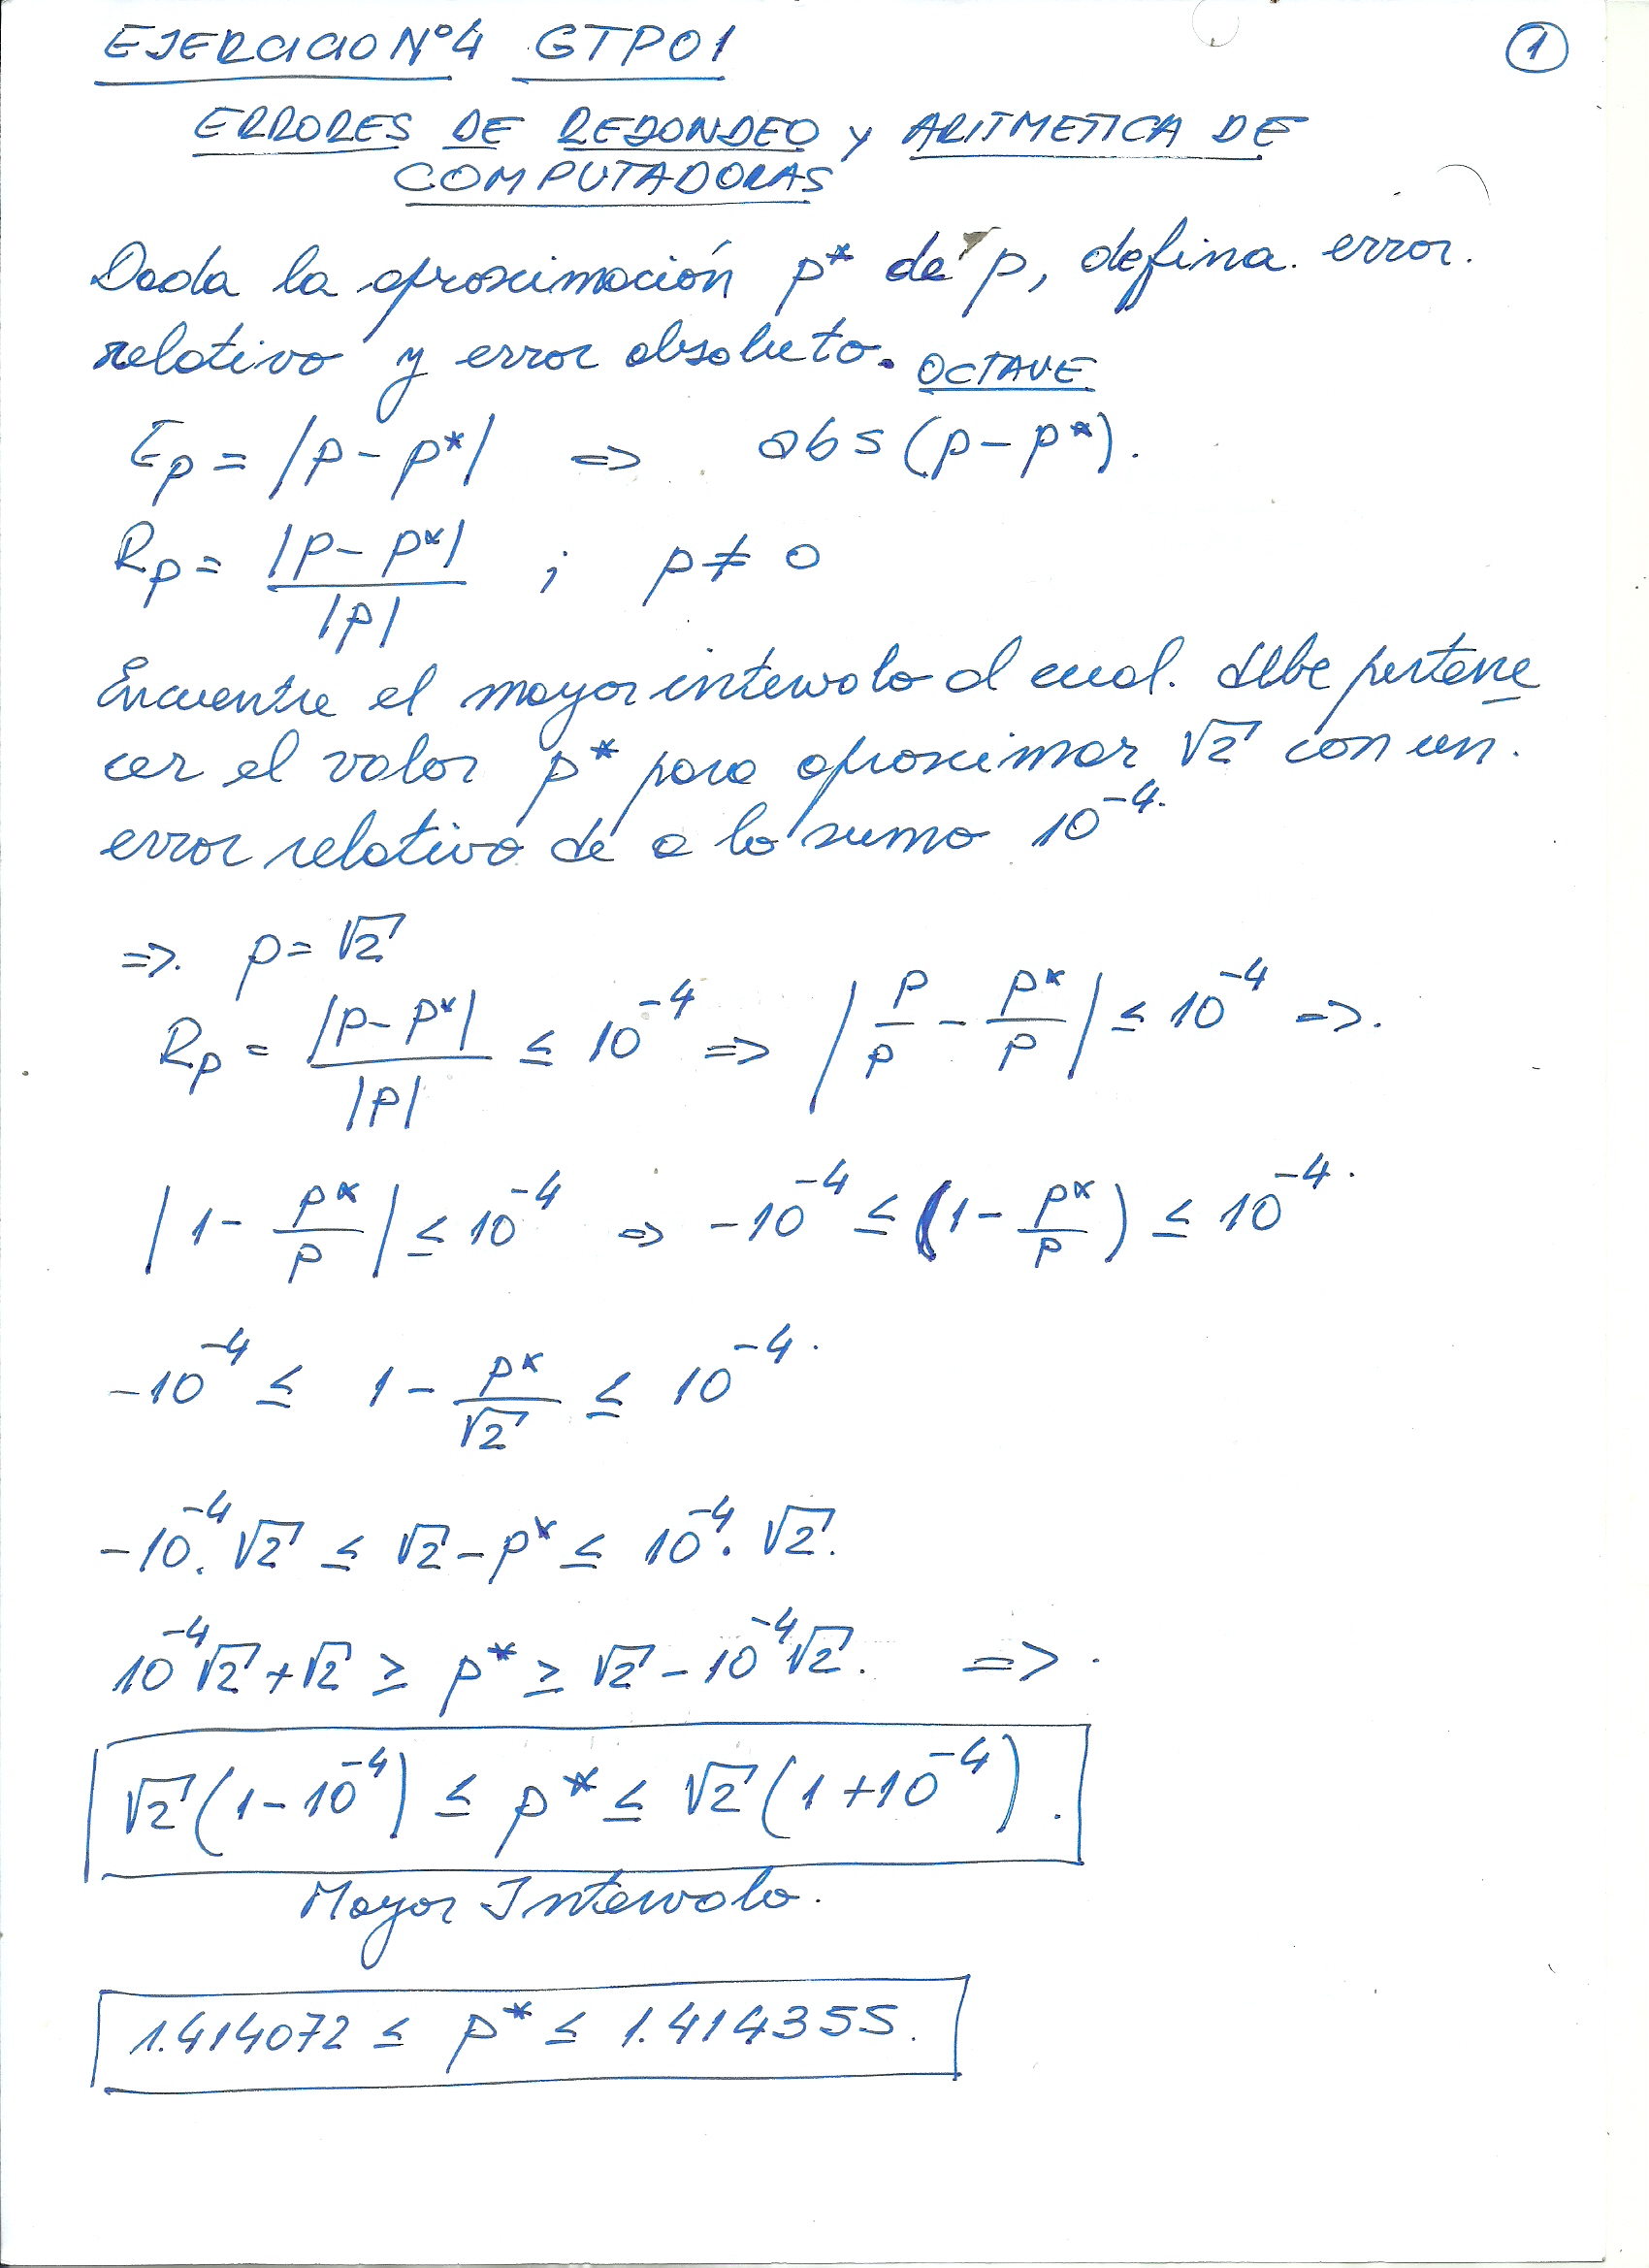 EJERCICIO Nº4 GTP01
1
ERRORES DE REDONDEO y ARITMETICA DE
COMPUTADORAS
Dada la aproximación p* de p, defina. error.
relativo y error absoluto. OCTAVE
Ep = |p - p*| => abs (p - p*).
Rp = |p - p*| / |p| ; p ≠ 0
Encuentre el mayor intervalo al cual. debe pertene
cer el valor p* para aproximar √2 con un.
error relativo de a lo sumo 10^-4.
=>. p = √2
Rp = |p - p*| / |p| ≤ 10^-4 => | p/p - p*/p | ≤ 10^-4 =>.
| 1 - p*/p | ≤ 10^-4 => -10^-4 ≤ (1 - p*/p) ≤ 10^-4.
-10^-4 ≤ 1 - p*/√2 ≤ 10^-4.
-10^-4. √2 ≤ √2 - p* ≤ 10^-4. √2.
10^-4 √2 + √2 ≥ p* ≥ √2 - 10^-4 √2. => .
√2 (1 - 10^-4) ≤ p* ≤ √2 (1 + 10^-4).
Mayor Intervalo.
1.414072 ≤ p* ≤ 1.414355.